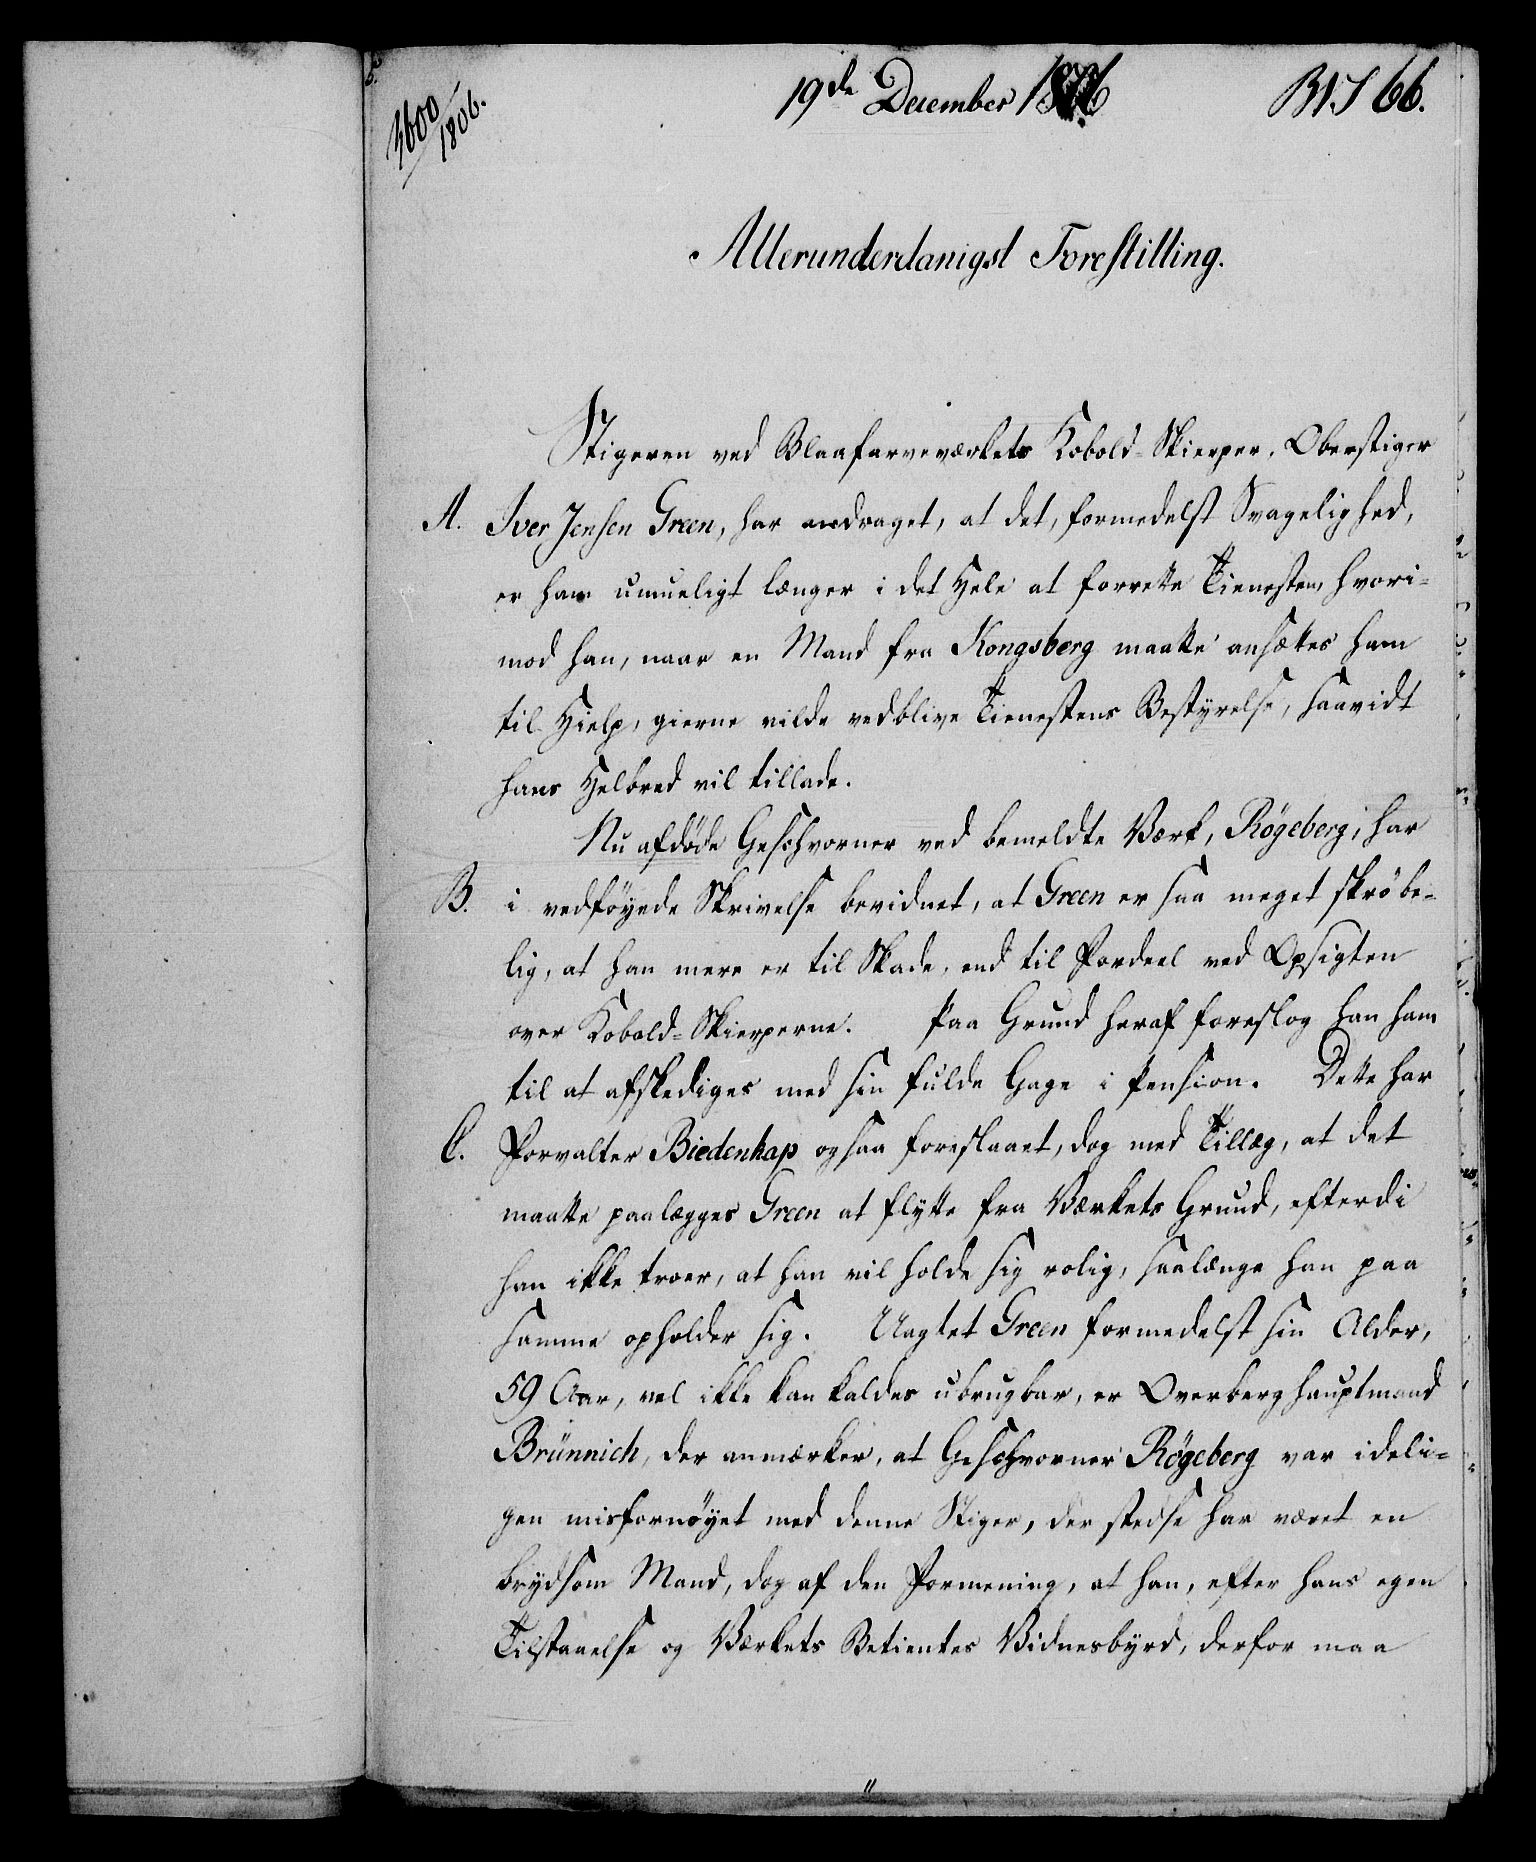 3600/1806.
19de December 1806
Allerunderdanigst Forestilling.
Stigeren ved Blaafarveværkets Kobold-Skierper, Oberstiger
A. Iver Jensen Green, har andraget, at det, formedelst Svagelighed,
er ham umueligt længer i det Hele at forrette Tienesten, hvori-
mod han, naar en Mand fra Kongsberg maatte ansættes ham
til Hielp, gierne vilde vedblive Tienestens Bestyrelse, saavidt
hans Helbred vil tillade.
Nu afdøde Geschworner ved bemeldte Værk, Røgeberg, har
B. i vedføyede Skrivelse bevidnet, at Green er saa meget skrøbe-
lig, at han mere er til Skade, end til Fordeel ved Opsigten
over Kobold-Skierperne. Paa Grund heraf foreslog han ham
til at afskediges med sin fulde Gage i Pension. Dette har
C. Forvalter Biedenkap ogsaa foreslaaet, dog med Tillæg, at det
maatte paalægges Green at flytte fra Værkets Grund, efterdi
han ikke troer, at han vil holde sig rolig, saalænge han paa
samme opholder sig. Uagtet Green formedelst sin Alder,
59 Aar, vel ikke kan kaldes ubrugbar, er Overberghauptmand
Brünnich, der anmærker, at Geschworner Røgeberg var ideli-
gen misfornøyet med denne Stiger, der stedse har været en
brydsom Mand, dog af den Formening, at han, efter hans egen
Tilstaaelse og Værkets Betientes Vidnesbyrd, derfor maa